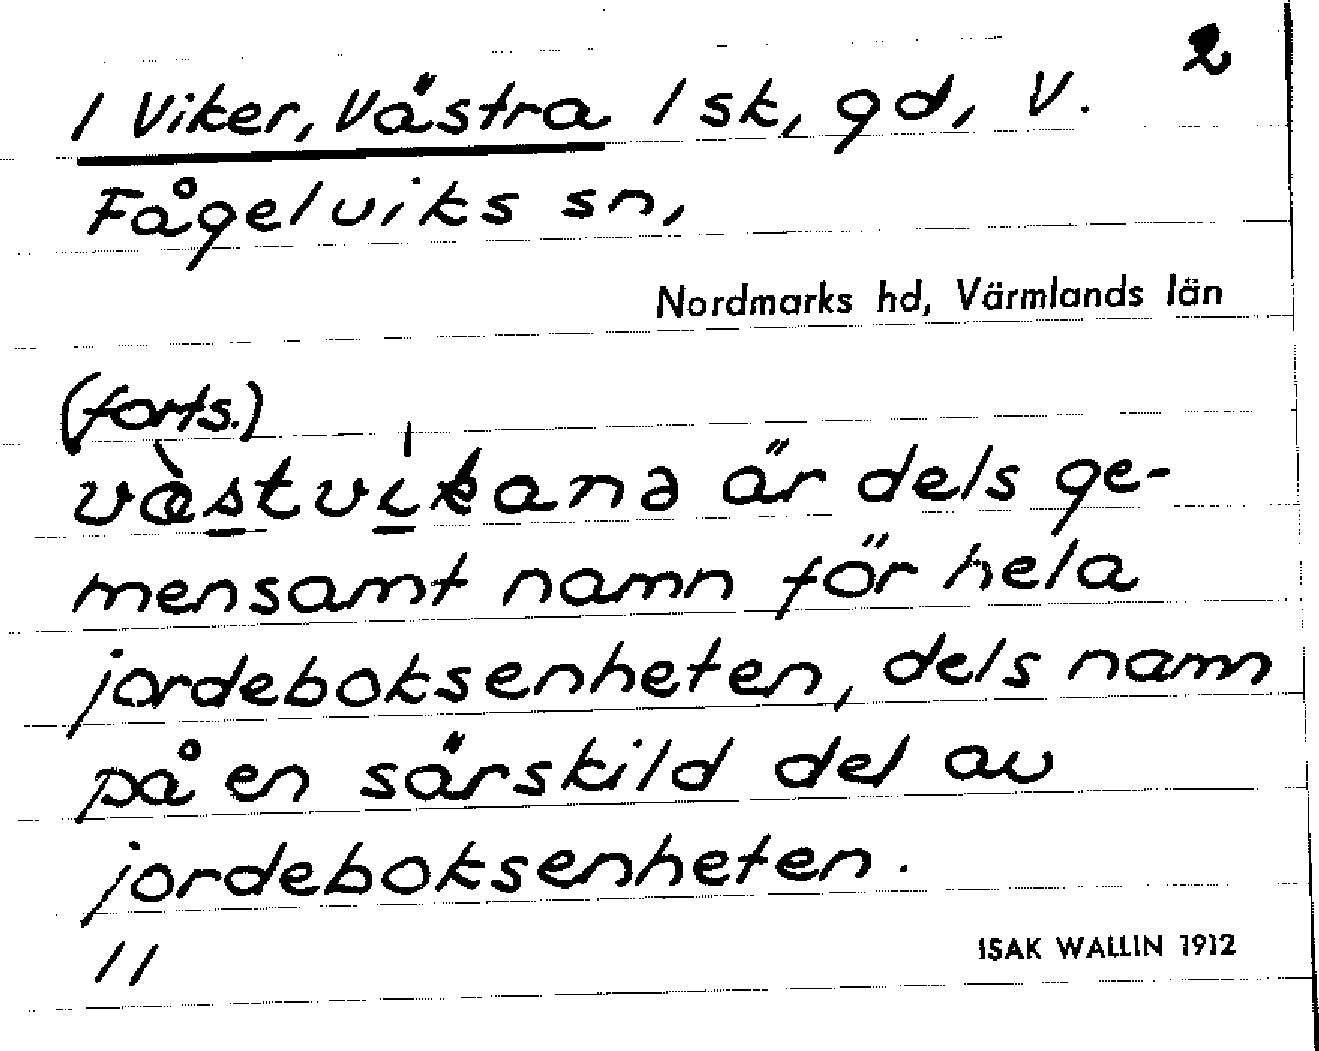 2
/ Viker, Västra / sk, gd, V.
Fågelviks sn,
Nordmarks hd, Värmlands län
(forts.)
væ̀stvíkanə är dels ge-
mensamt namn för hela
jordeboksenheten, dels namn
på en särskild del av
jordeboksenheten.
//
ISAK WALLIN 1912